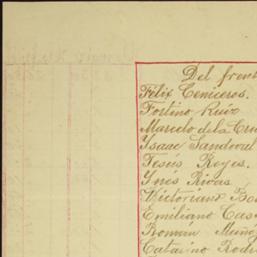 Del frent
Félix Ceniceros.
Fortino Ruíz
Marcelo de la Cru
Ysaac Sandoval
Jesús Reyes.
Ynés Rivas
Victoriano
Emiliano Cas
Román Muñoz
Catarino Rodr